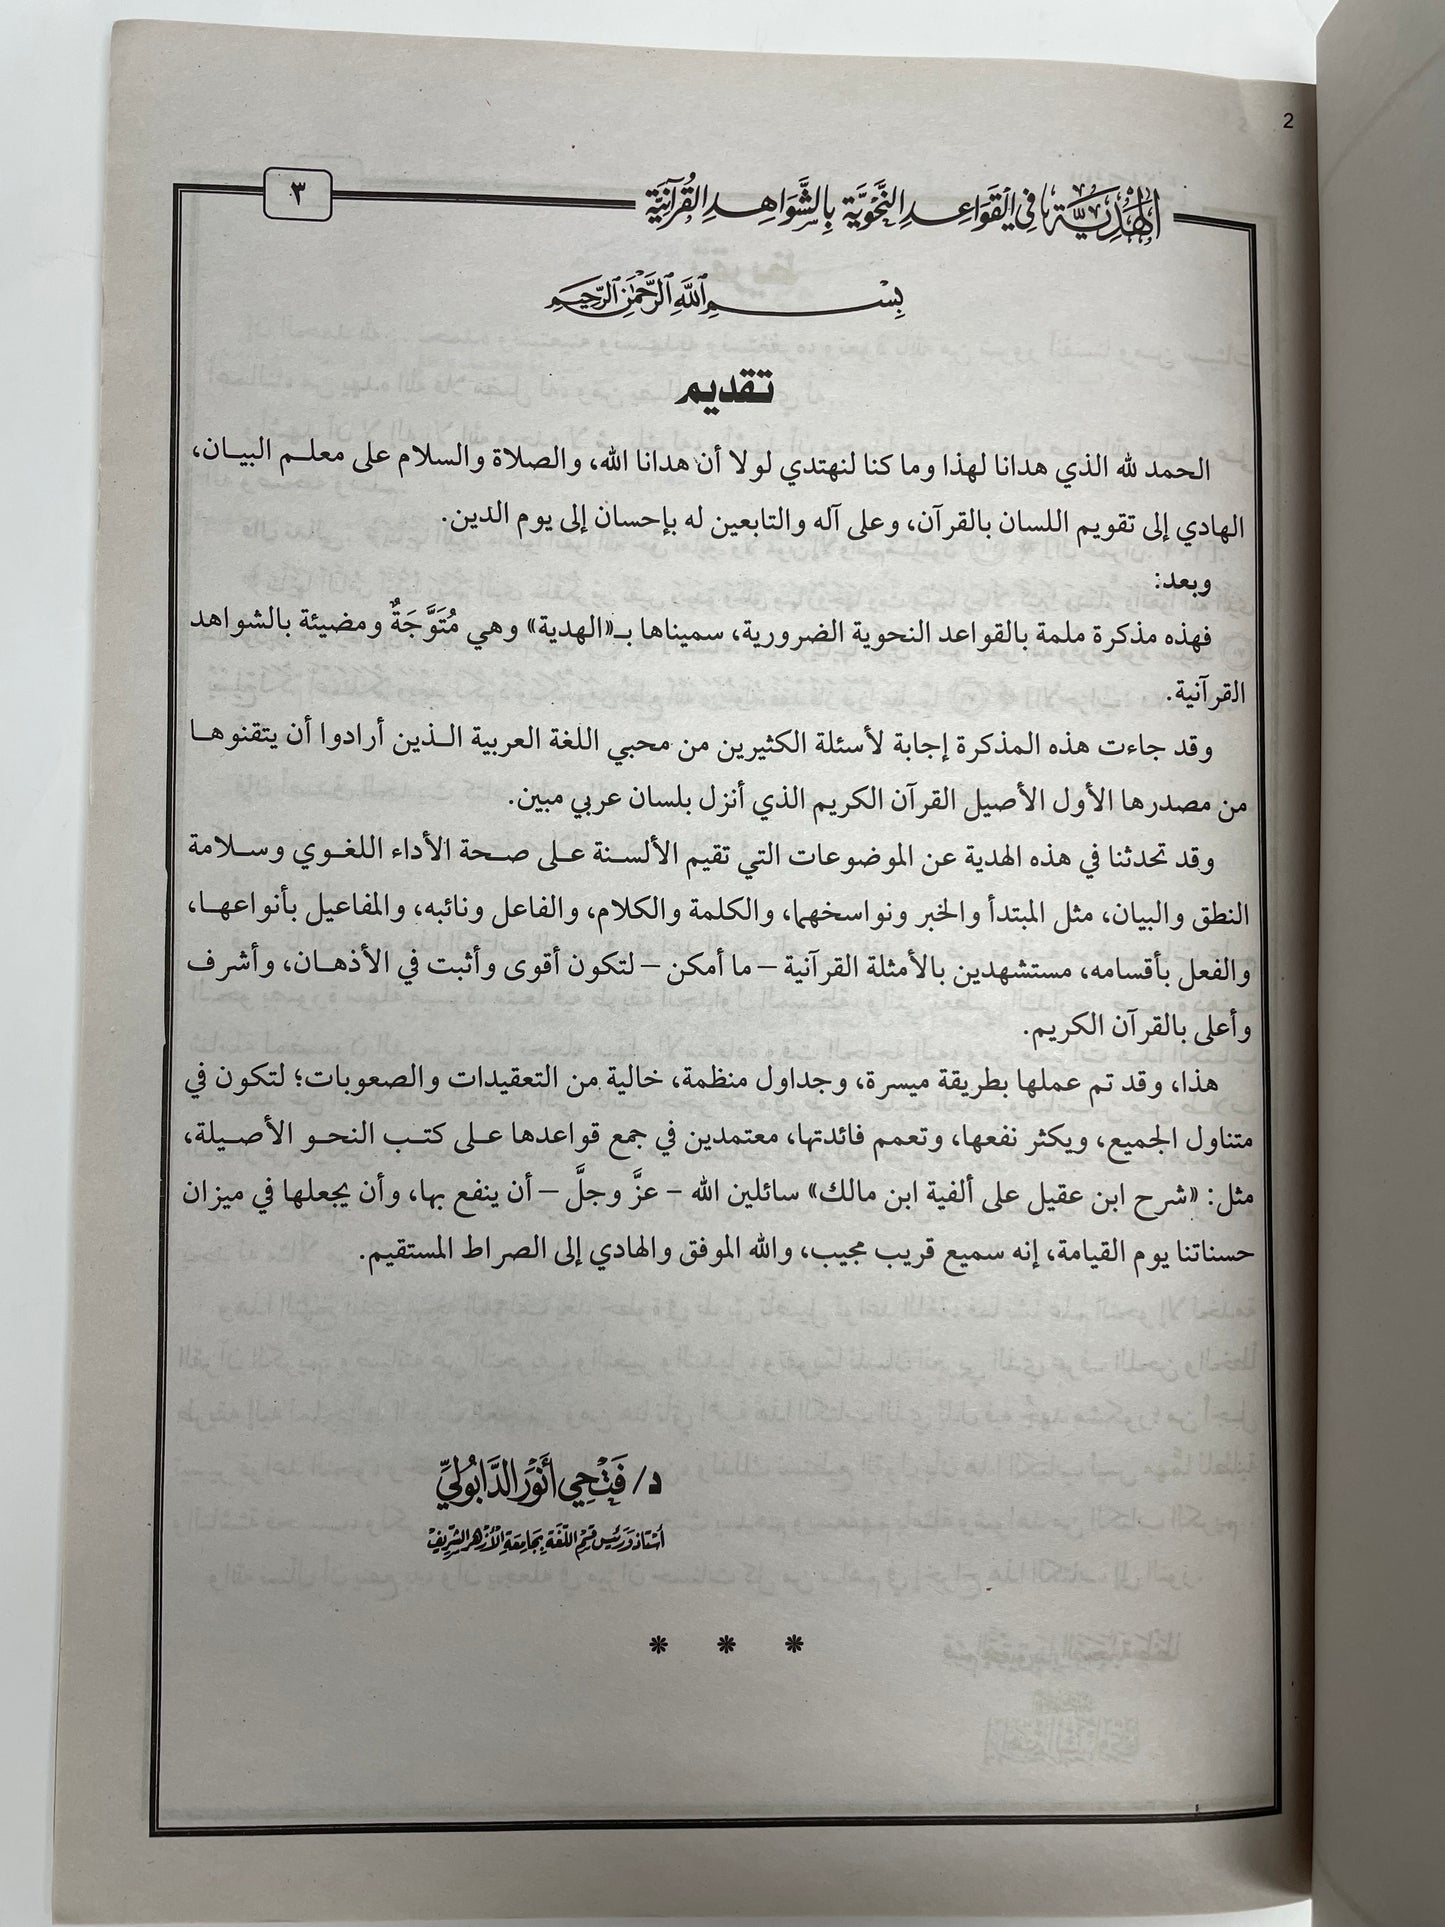 2
الهَدِيَّة في القَوَاعِدِ النَّحْوِيَّة بِالشَّوَاهِدِ القُرآنِيَّة
٣
بِسْمِ اللَّهِ الرَّحْمَٰنِ الرَّحِيمِ
تقديم
الحمد لله الذي هدانا لهذا وما كنا لنهتدي لولا أن هدانا الله، والصلاة والسلام على معلم البيان،
الهادي إلى تقويم اللسان بالقرآن، وعلى آله والتابعين له بإحسان إلى يوم الدين.
وبعد:
فهذه مذكرة ملمة بالقواعد النحوية الضرورية، سميناها بـ«الهدية» وهي مُتَوَّجَةٌ ومضيئة بالشواهد
القرآنية.
وقد جاءت هذه المذكرة إجابة لأسئلة الكثيرين من محبي اللغة العربية الذين أرادوا أن يتقنوها
من مصدرها الأول الأصيل القرآن الكريم الذي أنزل بلسان عربي مبين.
وقد تحدثنا في هذه الهدية عن الموضوعات التي تقيم الألسنة على صحة الأداء اللغوي وسلامة
النطق والبيان، مثل المبتدأ والخبر ونواسخهما، والكلمة والكلام، والفاعل ونائبه، والمفاعيل بأنواعها،
والفعل بأقسامه، مستشهدين بالأمثلة القرآنية – ما أمكن – لتكون أقوى وأثبت في الأذهان، وأشرف
وأعلى بالقرآن الكريم.
هذا، وقد تم عملها بطريقة ميسرة، وجداول منظمة، خالية من التعقيدات والصعوبات؛ لتكون في
متناول الجميع، ويكثر نفعها، وتعمم فائدتها، معتمدين في جمع قواعدها على كتب النحو الأصيلة،
مثل: «شرح ابن عقيل على ألفية ابن مالك» سائلين الله – عزَّ وجلَّ – أن ينفع بها، وأن يجعلها في ميزان
حسناتنا يوم القيامة، إنه سميع قريب مجيب، والله الموفق والهادي إلى الصراط المستقيم.
د/ فَتْحِي أَنْوَر الدَّابُولِيّ
أستاذ ورئيس قسم اللغة بجامعة الأزهر الشريف
* * *